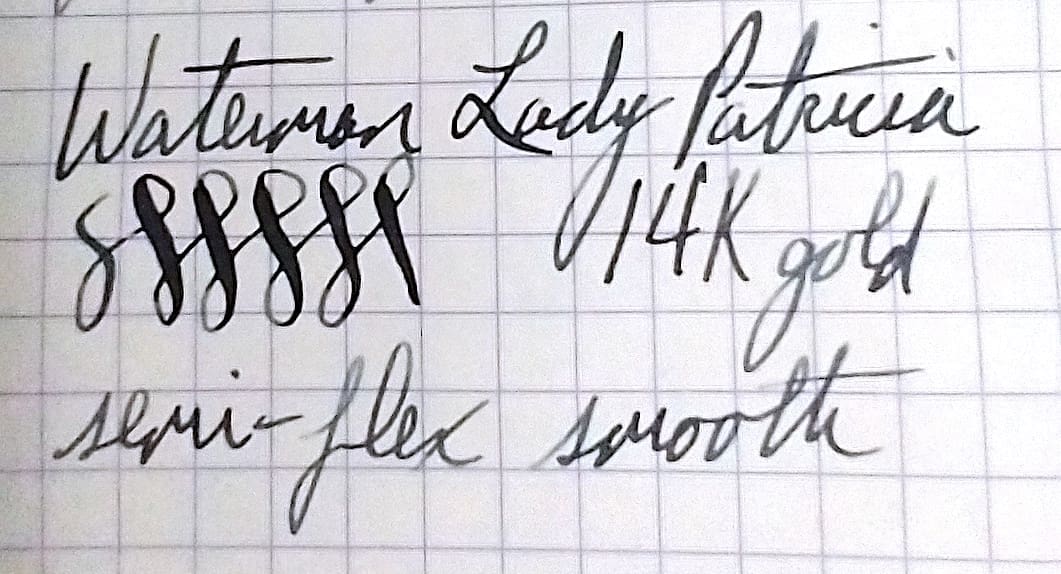 Waterman Lady Patricia
14K gold
semi-flex smooth